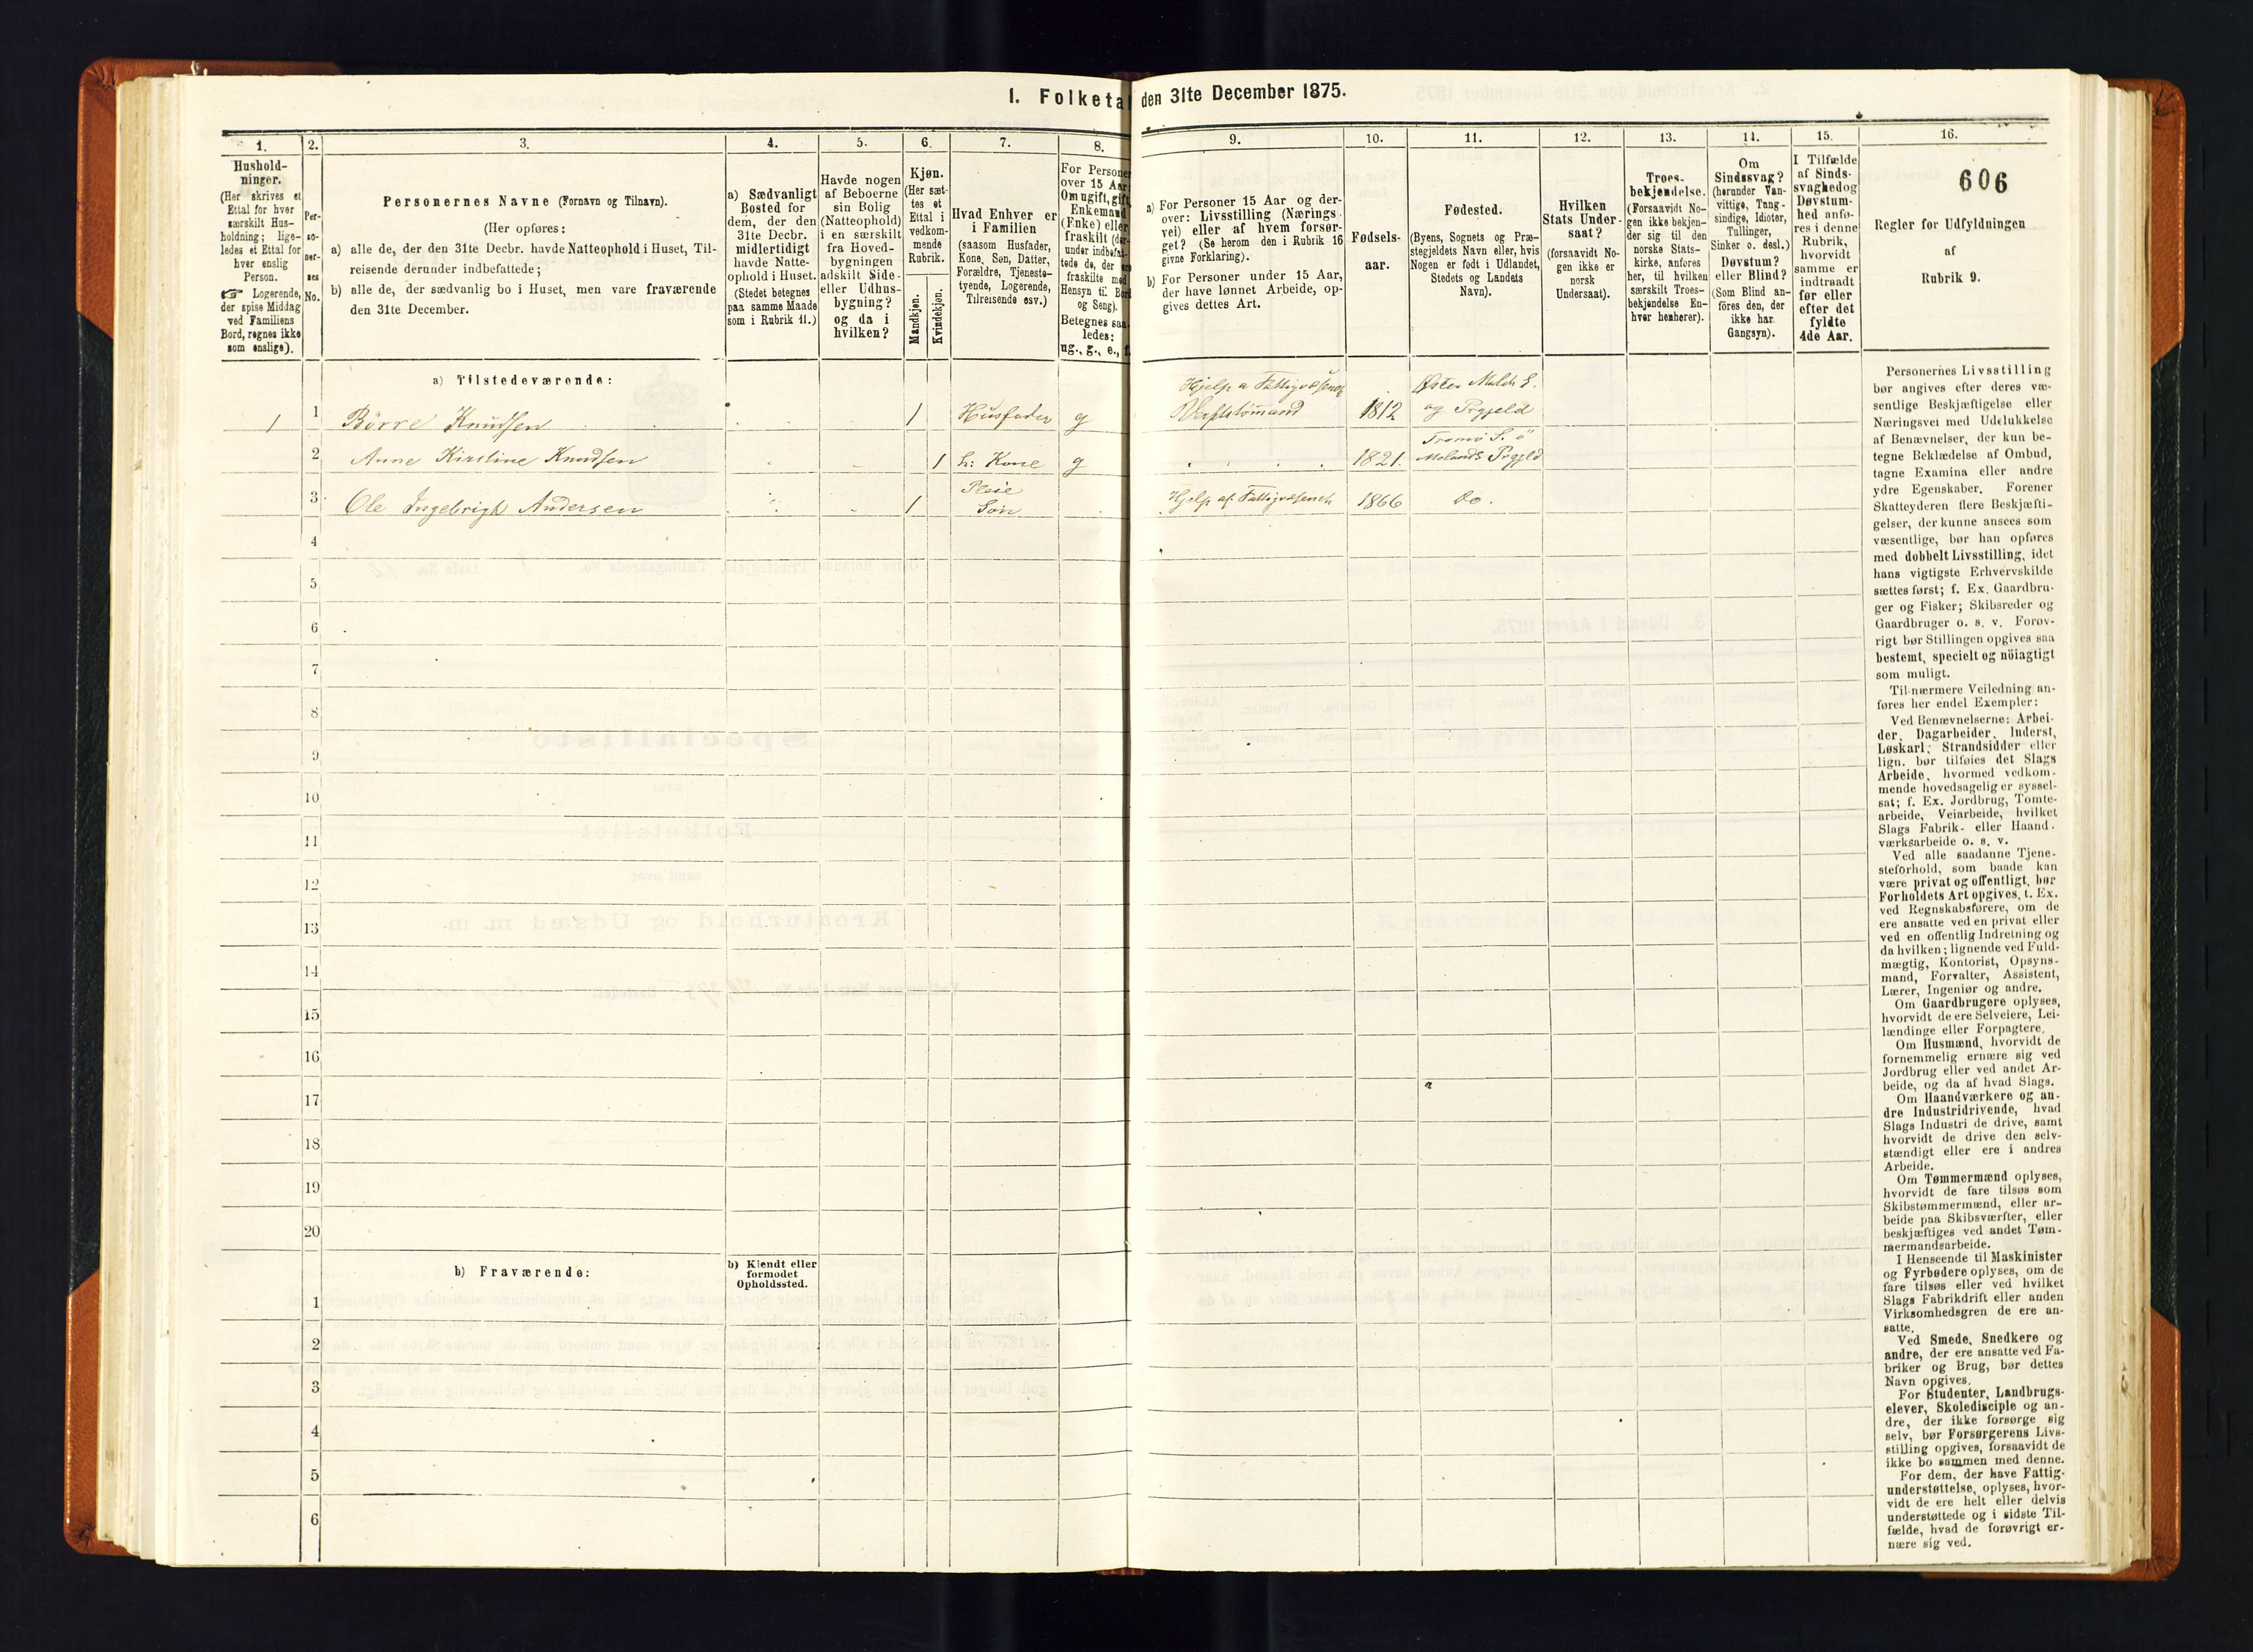 I. Folketal den 31te December 1875.
1. 2. 3. 4. 5. 6. 7. 8. 9. 10. 11. 12. 13. 14. 15. 16.
Hushold-
ninger.
(Her skrives et
Ettal for hver
særskilt Hus-
holdning; lige-
ledes et Ettal for
hver enslig
Person.
☞ Logerende,
der spise Middag
ved Familiens
Bord, regnes ikke
som enslige).
Per-
so-
ner-
nes
No.
Personernes Navne (Fornavn og Tilnavn).
(Her opføres:
a) alle de, der den 31te Decbr. havde Natteophold i Huset, Til-
reisende derunder indbefattede;
b) alle de, der sædvanlig bo i Huset, men vare fraværende
den 31te December.
a) Sædvanligt
Bosted for
dem, der den
31te Decbr.
midlertidigt
havde Natte-
ophold i Huset.
(Stedet betegnes
paa samme Maade
som i Rubrik 11.)
Havde nogen
af Beboerne
sin Bolig
(Natteophold)
i en særskilt
fra Hoved-
bygningen
adskilt Side-
eller Udhus-
bygning?
og da i
hvilken?
Kjøn.
(Her sæt-
tes et
Ettal i
vedkom-
mende
Rubrik.
Mandkjøn.
Kvindekjøn.
Hvad Enhver er
i Familien
(saasom Husfader,
Kone, Søn, Datter,
Forældre, Tjeneste-
tyende, Logerende,
Tilreisende osv.)
For Personer
over 15 Aar:
Om ugift, gift,
Enkemand
(Enke) eller
fraskilt (der-
under indbefat-
tede de, der ere
fraskilte med
Hensyn til Bord
og Seng).
Betegnes saa-
ledes:
ug., g., e., f.
a) For Personer 15 Aar og der-
over: Livsstilling (Nærings-
vei) eller af hvem forsør-
get? (Se herom den i Rubrik 16
givne Forklaring).
b) For Personer under 15 Aar,
der have lønnet Arbeide, op-
gives dettes Art.
Fødsels-
aar.
Fødested.
(Byens, Sognets og Præ-
stegjeldets Navn eller, hvis
Nogen er født i Udlandet,
Stedets og Landets
Navn).
Hvilken
Stats Under-
saat?
(forsaavidt No-
gen ikke er
norsk
Undersaat).
Troes-
bekjendelse.
(Forsaavidt No-
gen ikke bekjen-
der sig til den
norske Stats-
kirke, anføres
her, til hvilken
særskilt Troes-
bekjendelse En-
hver henhører).
Om
Sindssvag?
(herunder Van-
vittige, Tung-
sindige, Idioter,
Sinker o. desl.)
Døvstum?
eller Blind?
(Som Blind an-
føres den, der
ikke har
Gangsyn).
I Tilfælde
af Sinds-
svaghed og
Døvstum-
hed anfø-
res i denne
Rubrik,
hvorvidt
samme er
indtraadt
før eller
efter det
fyldte
4de Aar.
606
Regler for Udfyldningen
af
Rubrik 9.
a) Tilstedeværende:
1 1 Børre Knudsen 1 Husfader g Hjelp a Fattigvæsenet 1812 Øster Molds S.
og Prgjeld
2 Anne Kirstine Knudsen 1 h: Kone g 1821. Tromø S. ø
Molands Prgjld
3 Ole Ingebrigt Andersen 1 Pleie
Søn Hjelp af Fattigvæsenet 1866 Do.
4
5
6
7
8
9
10
11
12
13
14
15
16
17
18
19
20
b) Fraværende:
b) Kjendt eller
formodet
Opholdssted.
1
2
3
4
5
6
Personernes Livsstilling
bør angives efter deres væ-
sentlige Beskjæftigelse eller
Næringsvei med Udelukkelse
af Benævnelser, der kun be-
tegne Beklædelse af Ombud,
tagne Examina eller andre
ydre Egenskaber. Forener
Skatteyderen flere Beskjæfti-
gelser, der kunne ansees som
væsentlige, bør han opføres
med dobbelt Livsstilling, idet
hans vigtigste Erhvervskilde
sættes først; f. Ex. Gaardbru-
ger og Fisker; Skibsreder og
Gaardbruger o. s. v. Forøv-
rigt bør Stillingen opgives saa
bestemt, specielt og nöiagtigt
som muligt.
Til nærmere Veiledning an-
føres her endel Exempler:
Ved Benævnelserne: Arbei-
der, Dagarbeider, Inderst,
Løskarl, Strandsidder eller
lign. bør tilføies det Slags
Arbeide, hvormed vedkom-
mende hovedsagelig er syssel-
sat; f. Ex. Jordbrug, Tomte-
arbeide, Veiarbeide, hvilket
Slags Fabrik- eller Haand-
værksarbeide o. s. v.
Ved alle saadanne Tjene-
steforhold, som baade kan
være privat og offentligt, bør
Forholdets Art opgives, t. Ex.
ved Regnskabsførere, om de
ere ansatte ved en privat eller
ved en offentlig Indretning og
da hvilken; lignende ved Fuld-
mægtig, Kontorist, Opsyns-
mand, Forvalter, Assistent,
Lærer, Ingeniør og andre.
Om Gaardbrugere oplyses,
hvorvidt de ere Selveiere, Lei-
lændinge eller Forpagtere.
Om Husmænd, hvorvidt de
fornemmelig ernære sig ved
Jordbrug eller ved andet Ar-
beide, og da af hvad Slags.
Om Haandværkere og an-
dre Industridrivende, hvad
Slags Industri de drive, samt
hvorvidt de drive den selv-
stændigt eller ere i andres
Arbeide.
Om Tømmermænd oplyses,
hvorvidt de fare tilsøs som
Skibstømmermænd, eller ar-
beide paa Skibsværfter, eller
beskjæftiges ved andet Tøm-
mermandsarbeide.
I Henseende til Maskinister
og Fyrbødere oplyses, om de
fare tilsøs eller ved hvilket
Slags Fabrikdrift eller anden
Virksomhedsgren de ere an-
satte.
Ved Smede, Snedkere og
andre, der ere ansatte ved Fa-
briker og Brug, bør dettes
Navn opgives.
For Studenter, Landbrugs-
elever, Skoledisciple og an-
dre, der ikke forsørge sig
selv, bør Forsørgerens Livs-
stilling opgives, forsaavidt de
ikke bo sammen med denne.
For dem, der have Fattig-
understøttelse, oplyses, hvor-
vidt de ere helt eller delvis
understøttede og i sidste Til-
fælde, hvad de forøvrigt er-
nære sig ved.